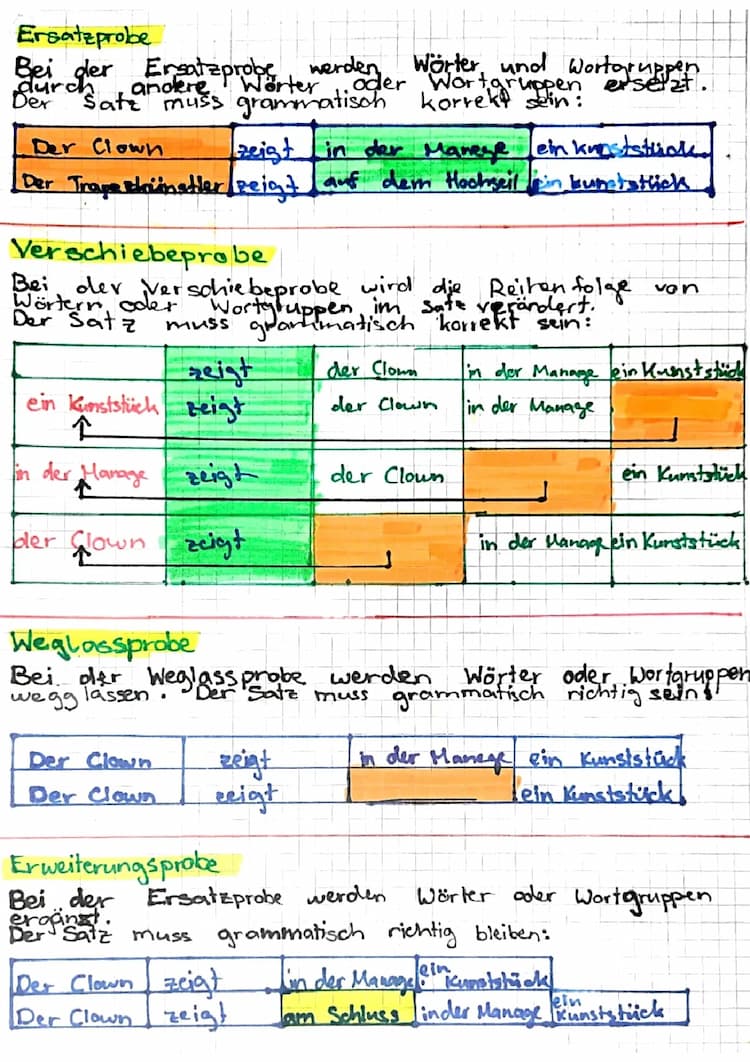 Ersatzprobe
Bei der Ersatzprobe werden Wörter und Wortgruppen
durch andere Wörter oder Wortgruppen ersetzt.
Der Satz muss grammatisch korrekt sein:
Der Clown zeigt in der Manege ein Kunststück
Der Trapezkünstler zeigt auf dem Hochseil ein Kunststück
Verschiebeprobe
Bei der Verschiebeprobe wird die Reihenfolge von
Wörtern oder Wortgruppen im Satz verändert.
Der Satz muss grammatisch korrekt sein:
zeigt der Clown in der Manage ein Kunststück
ein Kunststück zeigt der Clown in der Manage
in der Manage zeigt der Clown ein Kunststück
der Clown zeigt in der Manage ein Kunststück
Weglassprobe
Bei der Weglassprobe werden Wörter oder Wortgruppen
wegglassen. Der Satz muss grammatisch richtig sein!
Der Clown zeigt in der Manege ein Kunststück
Der Clown zeigt ein Kunststück.
Erweiterungsprobe
Bei der Ersatzprobe werden Wörter oder Wortgruppen
ergänzt.
Der Satz muss grammatisch richtig bleiben:
Der Clown zeigt in der Manage ein Kunststück
Der Clown zeigt am Schluss in der Manage ein Kunststück